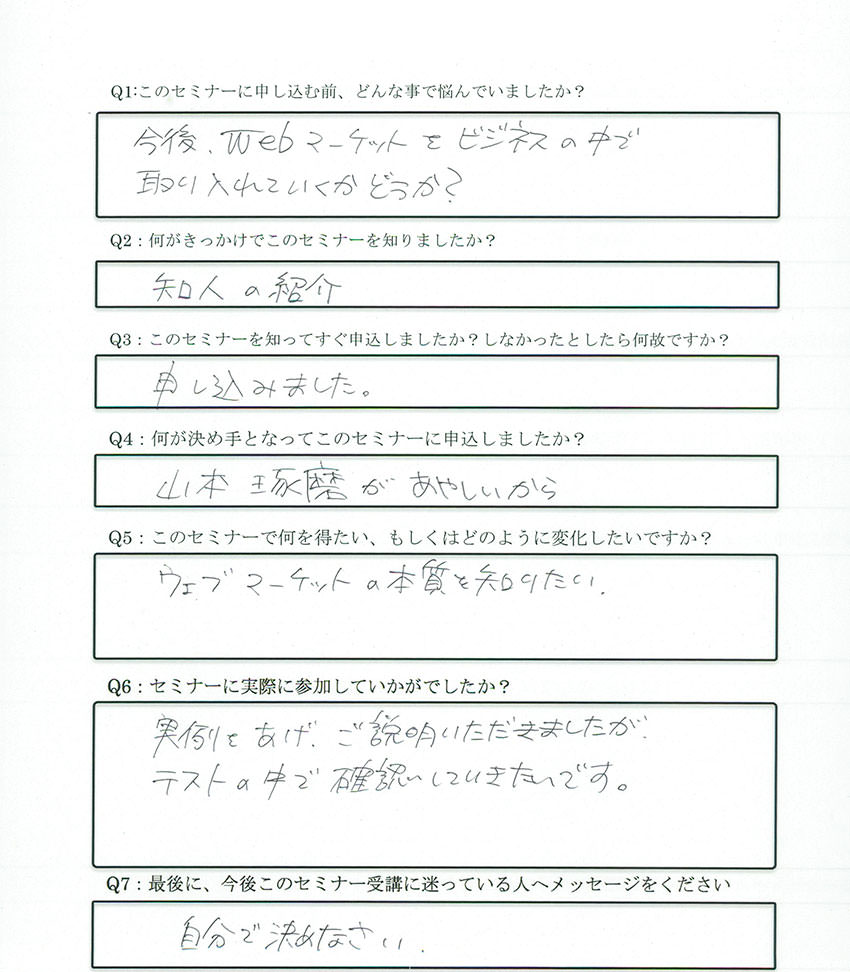 Q1:このセミナーに申し込む前、どんな事で悩んでいましたか？
今後、Webマーケットをビジネスの中で
取り入れていくかどうか?
Q2：何がきっかけでこのセミナーを知りましたか？
知人の紹介
Q3：このセミナーを知ってすぐ申込しましたか？しなかったとしたら何故ですか？
申し込みました。
Q4：何が決め手となってこのセミナーに申込しましたか？
山本 琢磨があやしいから
Q5：このセミナーで何を得たい、もしくはどのように変化したいですか？
ウェブマーケットの本質を知りたい.
Q6：セミナーに実際に参加していかがでしたか？
実例をあげ、ご説明いただきましたが、
テストの中で確認していきたいです。
Q7：最後に、今後このセミナー受講に迷っている人へメッセージをください
自分で決めなさい.